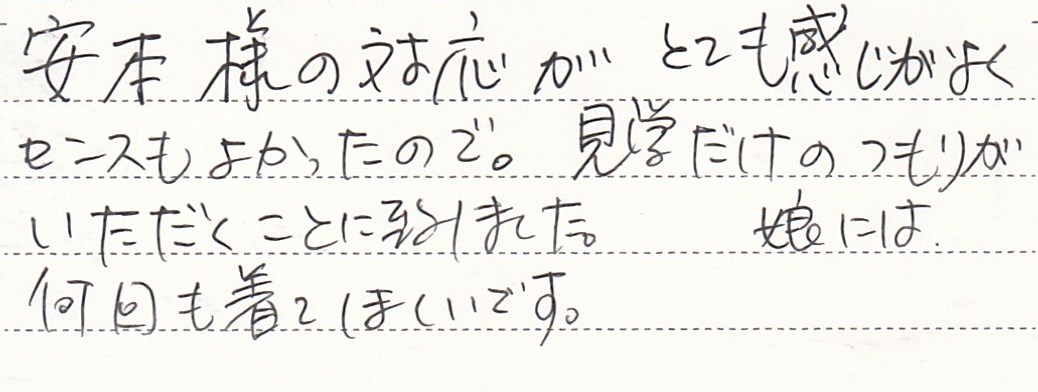 安本様の対応が とても感じがよく
センスもよかったので。見学だけのつもりが
いただくことに致しました。 娘には
何回も着てほしいです。